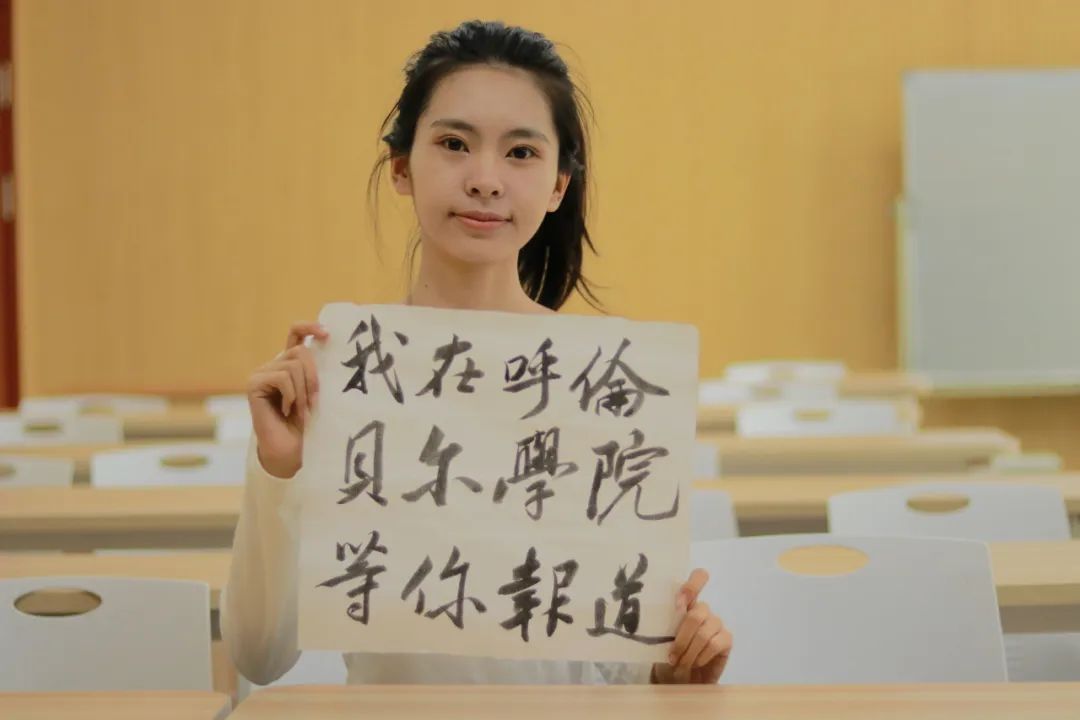 我在呼倫
貝尔學院
等你報道